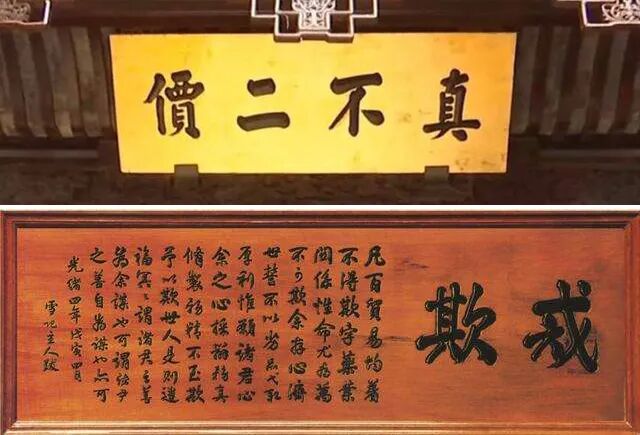 真不二價
戒欺
凡百貿易均著
不得欺字藥業
關係性命尤為萬
不可欺余存心濟
世誓不以劣品弋取
厚利惟願諸君心
余之心採辦務真
修製務精不至欺
予以欺世人是則造
福冥冥謂諸君之善
為余謀也可謂諸君
之善自為謀也亦可
光緒四年戊寅四月
雪記主人跋